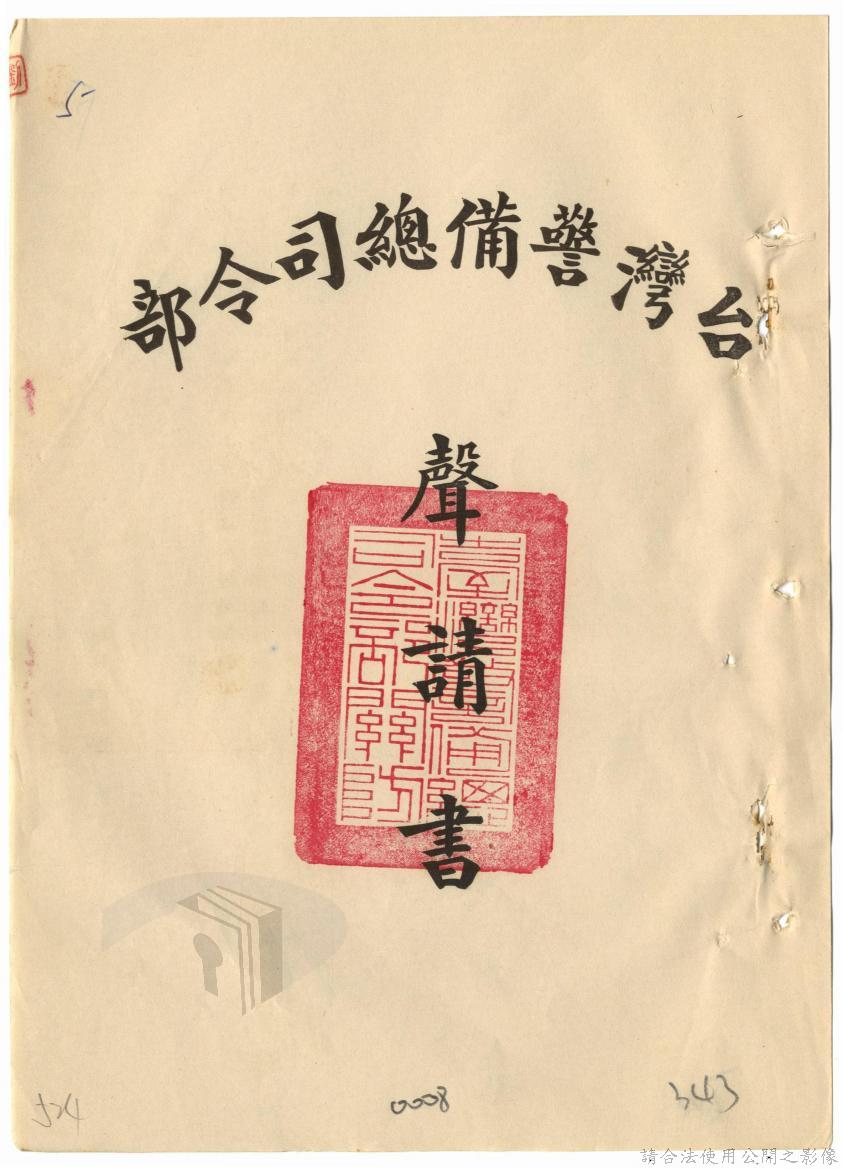 5
台灣警備總司令部
聲請書
臺灣警備總
司令部關防
524
0008
343
請合法使用公開之影像